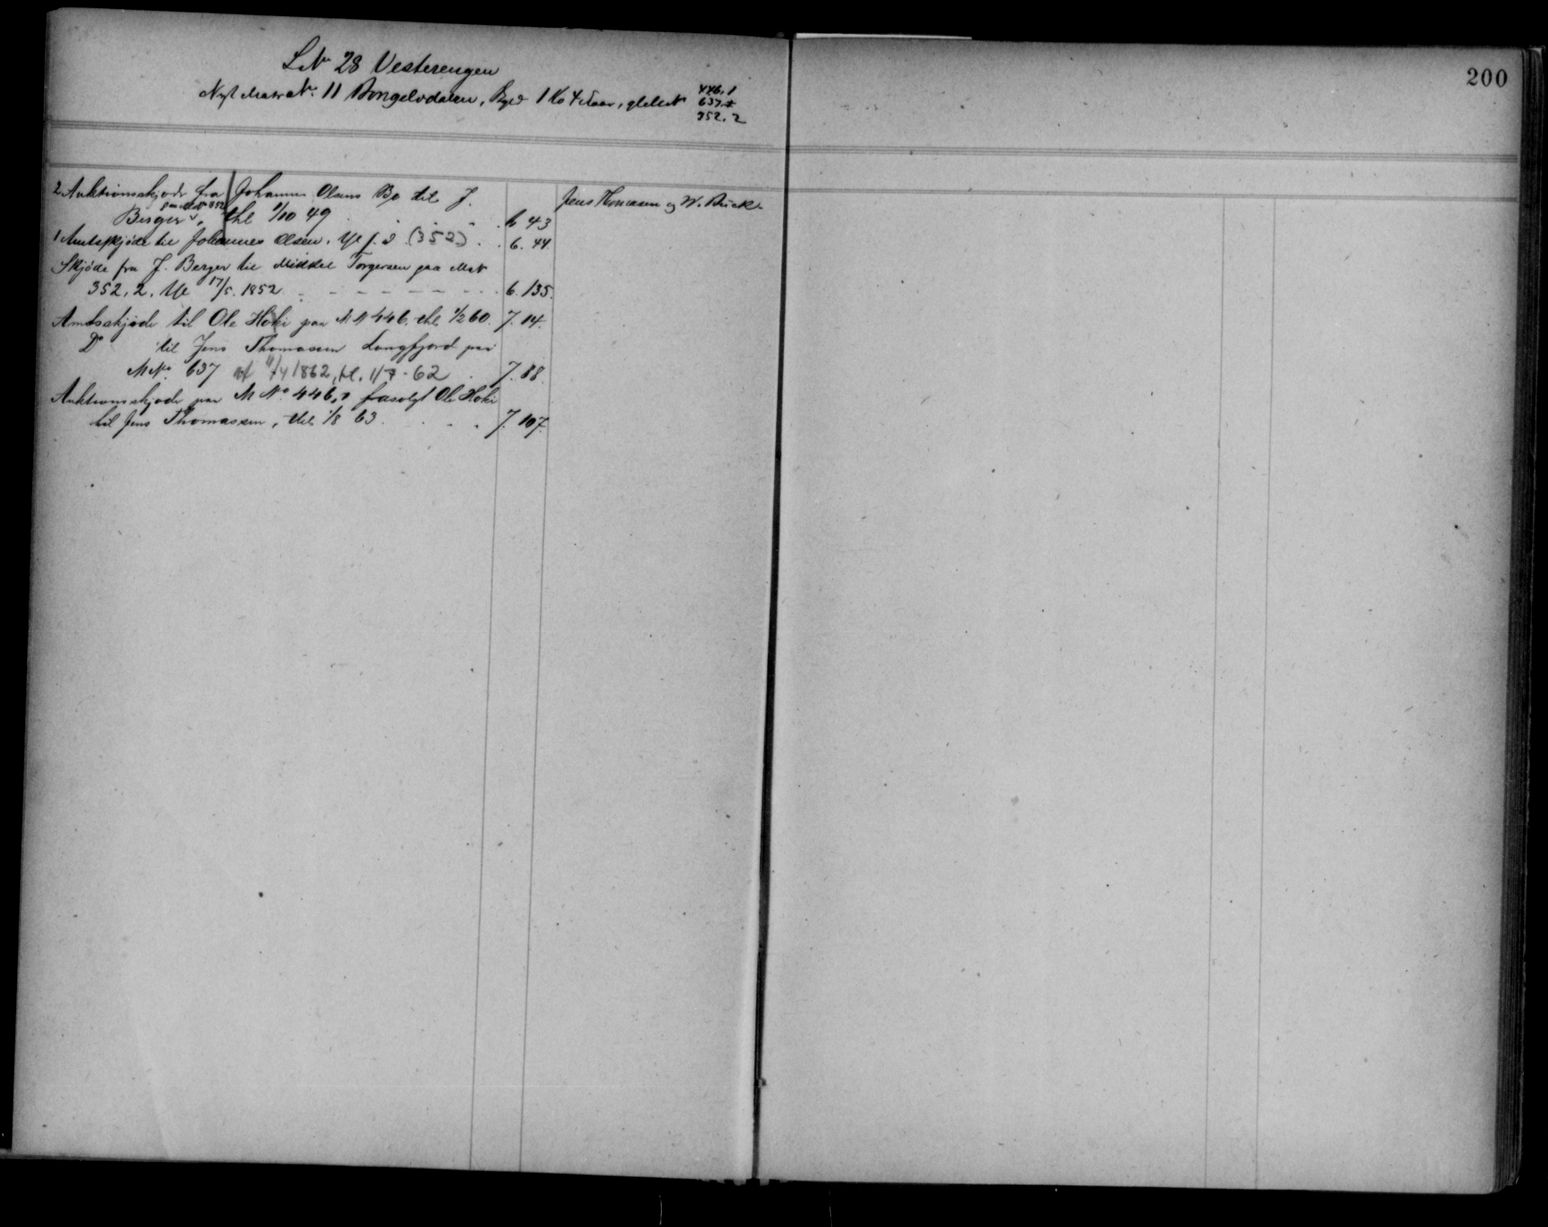 200
L.N. 28 Vesterengen
Nyt Matr. N. 11 Bongelvdalen, Byd 1 Ko 4 Faar, gl. M. N. 446.1
637.
352.2
2 Auktionsskjøde fra Johannes Olsens Bo til J.
paa M.N. 352
Berger, thl 1/10 49 6. 43
Jens Thomasen og W. Buck.
1 Amtsskjøde til Johannes Olsen. (352) 6. 44
Skjøde fra J. Berger til Mikkel Torgersen paa M.N.
352. 2. 17/5. 1852 6. 135.
Amtsskjøde til Ole Heiki paa M.N. 446, thl 1/2 60. 7. 14.
Do til Jens Thomassen Langfjord paa
M No 637 af 11/4 1862, tl. 1/7-62 7. 88.
Auktionsskjøde paa M No 446, fra solgt Ole Heiki
til Jens Thomassen, thl. 1/8 63 7. 107.